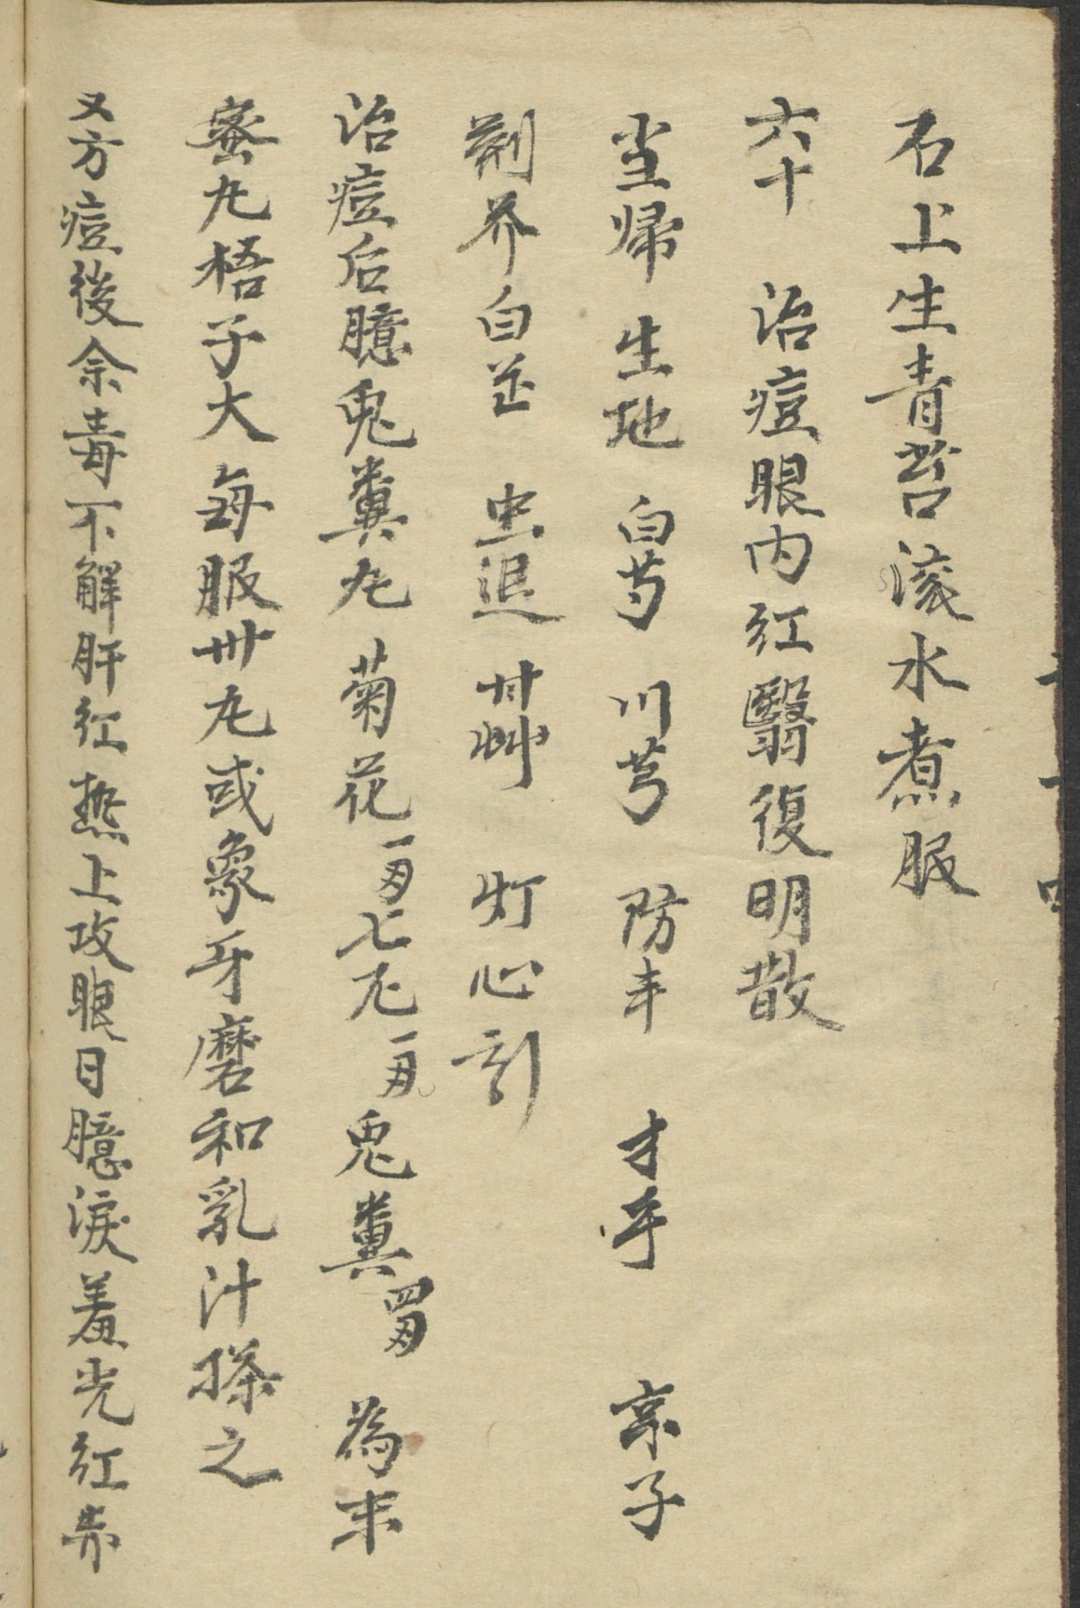 石上生青苔滚水煮服
六十 治痘眼内红翳復明散
当帰 生地 白芍 川芎 防丰 才乎 京子
荆芥 白芷 虫退 甘艸 灯心引
治痘后臆兎糞丸 菊花一両七尾一両兎糞四両 為末
蜜丸梧子大每服卅丸或象牙磨和乳汁搽之
又方痘後余毒不解肝红热上攻眼目臆淚羞光红赤